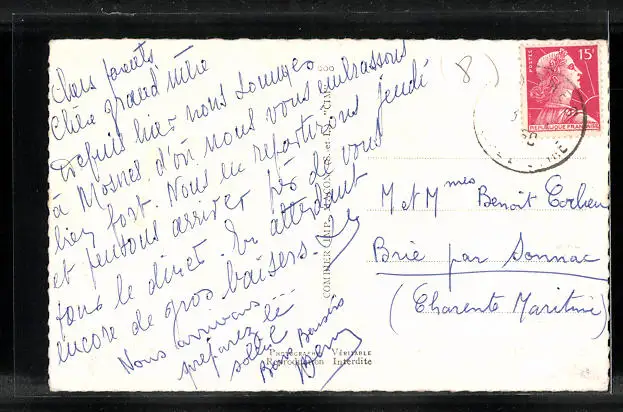 Chers parents
Chère grand'mère
Depuis hier nous sommes
à Mosnes d'où nous vous embrassons
bien fort. Nous en repartirons jeudi
et pensons arriver près de vous
tous le direct. En attendant
encore de gros baisers.
Nous arrivons...
préparez le
soleil
Bons Baisers
(8)
POSTES
15F
REPUBLIQUE FRANÇAISE
M et Mmes Benoît
Brie par Sonnac
(Charente Maritime)
COMBIER IMP. MACON
PHOTOGRAPHIE VÉRITABLE
Reproduction Interdite